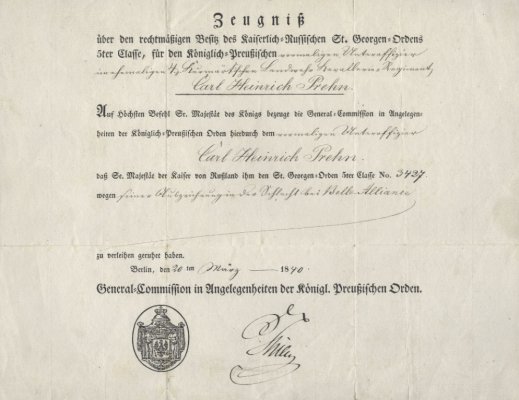 Zeugniß
über den rechtmäßigen Besitz des Kaiserlich-Russischen St. Georgen-Ordens
5ter Classe, für den Königlich-Preußischen vormaligen Unteroffizier
im ehemaligen 4. Kurmärkschen Landwehr Kavallerie Regiment,
Carl Heinrich Prehn.
Auf Höchsten Befehl Sr. Majestät des Königs bezeuge die General-Commission in Angelegen-
heiten der Königlich-Preußischen Orden hierdurch dem vormaligen Unteroffizier
Carl Heinrich Prehn.
daß Se. Majestät der Kaiser von Rußland ihm den St. Georgen-Orden 5ter Classe No. 3427
wegen seiner Auszeichnung in der Schlacht bei Belle Alliance
zu verleihen geruhet haben.
Berlin, den 20 ten März 1840.
General-Commission in Angelegenheiten der Königl. Preußischen Orden.